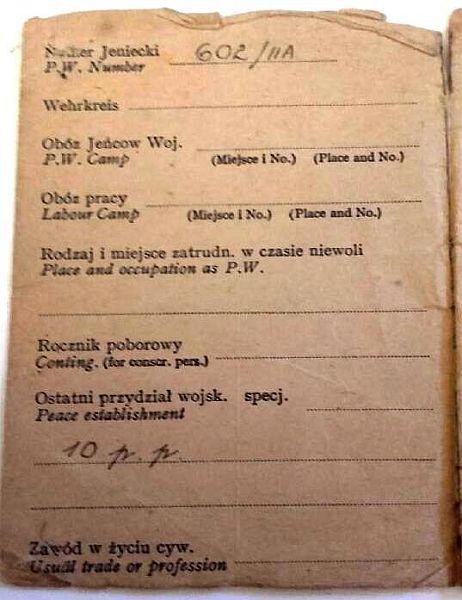 Numer Jeniecki 602/IIA
P.W. Number
Wehrkreis
Obóz Jeńcow Woj.
P.W. Camp (Miejsce i No.) (Place and No.)
Obóz pracy
Labour Camp (Miejsce i No.) (Place and No.)
Rodzaj i miejsce zatrudn. w czasie niewoli
Place and occupation as P.W.
Rocznik poborowy
Conting. (for conscr. pers.)
Ostatni przydział wojsk. specj.
Peace establishment
10 p. p.
Zawód w życiu cyw.
Usual trade or profession